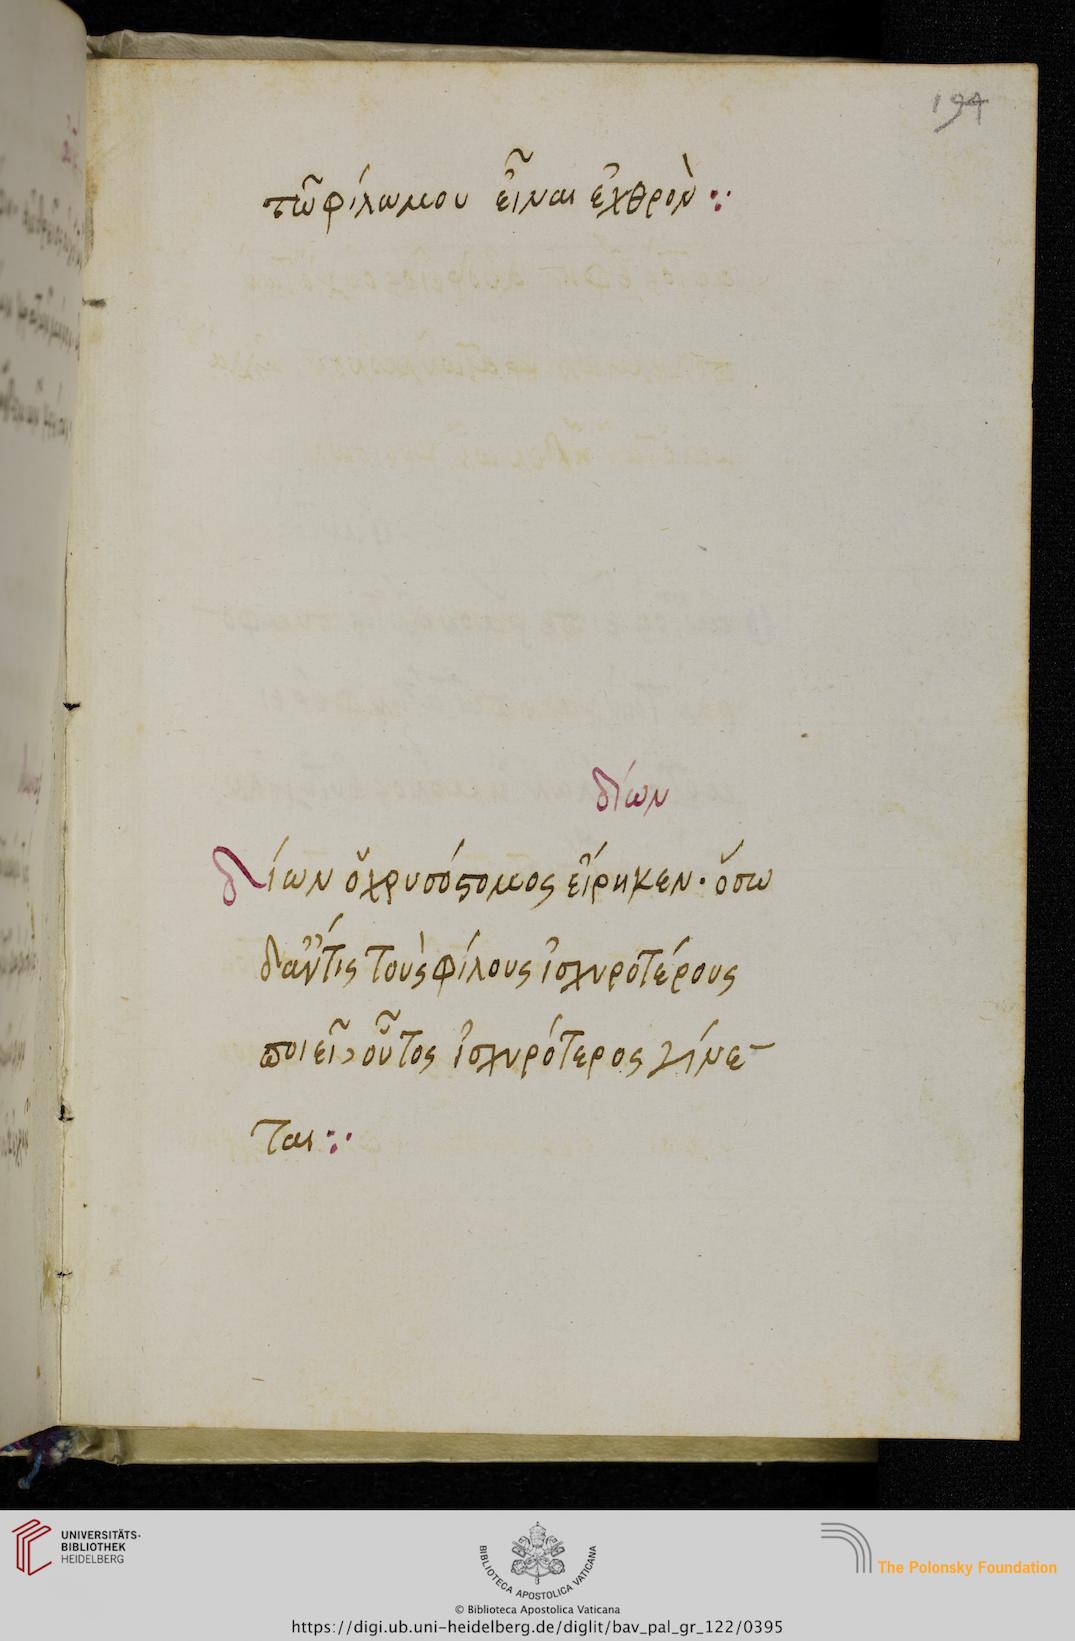 194
τῶ φίλω μου εἶναι ἐχθρὸν
δίων
δίων ὁ χρυσόστομος εἴρηκεν· ὅσω
δ' ἄν τις τοὺς φίλους ἰσχυροτέρους
ποιεῖ, οὗτος ἰσχυρότερος γίνε
ται
UNIVERSITÄTS-
BIBLIOTHEK
HEIDELBERG
BIBLIOTECA APOSTOLICA VATICANA
The Polonsky Foundation
© Biblioteca Apostolica Vaticana
https://digi.ub.uni-heidelberg.de/diglit/bav_pal_gr_122/0395